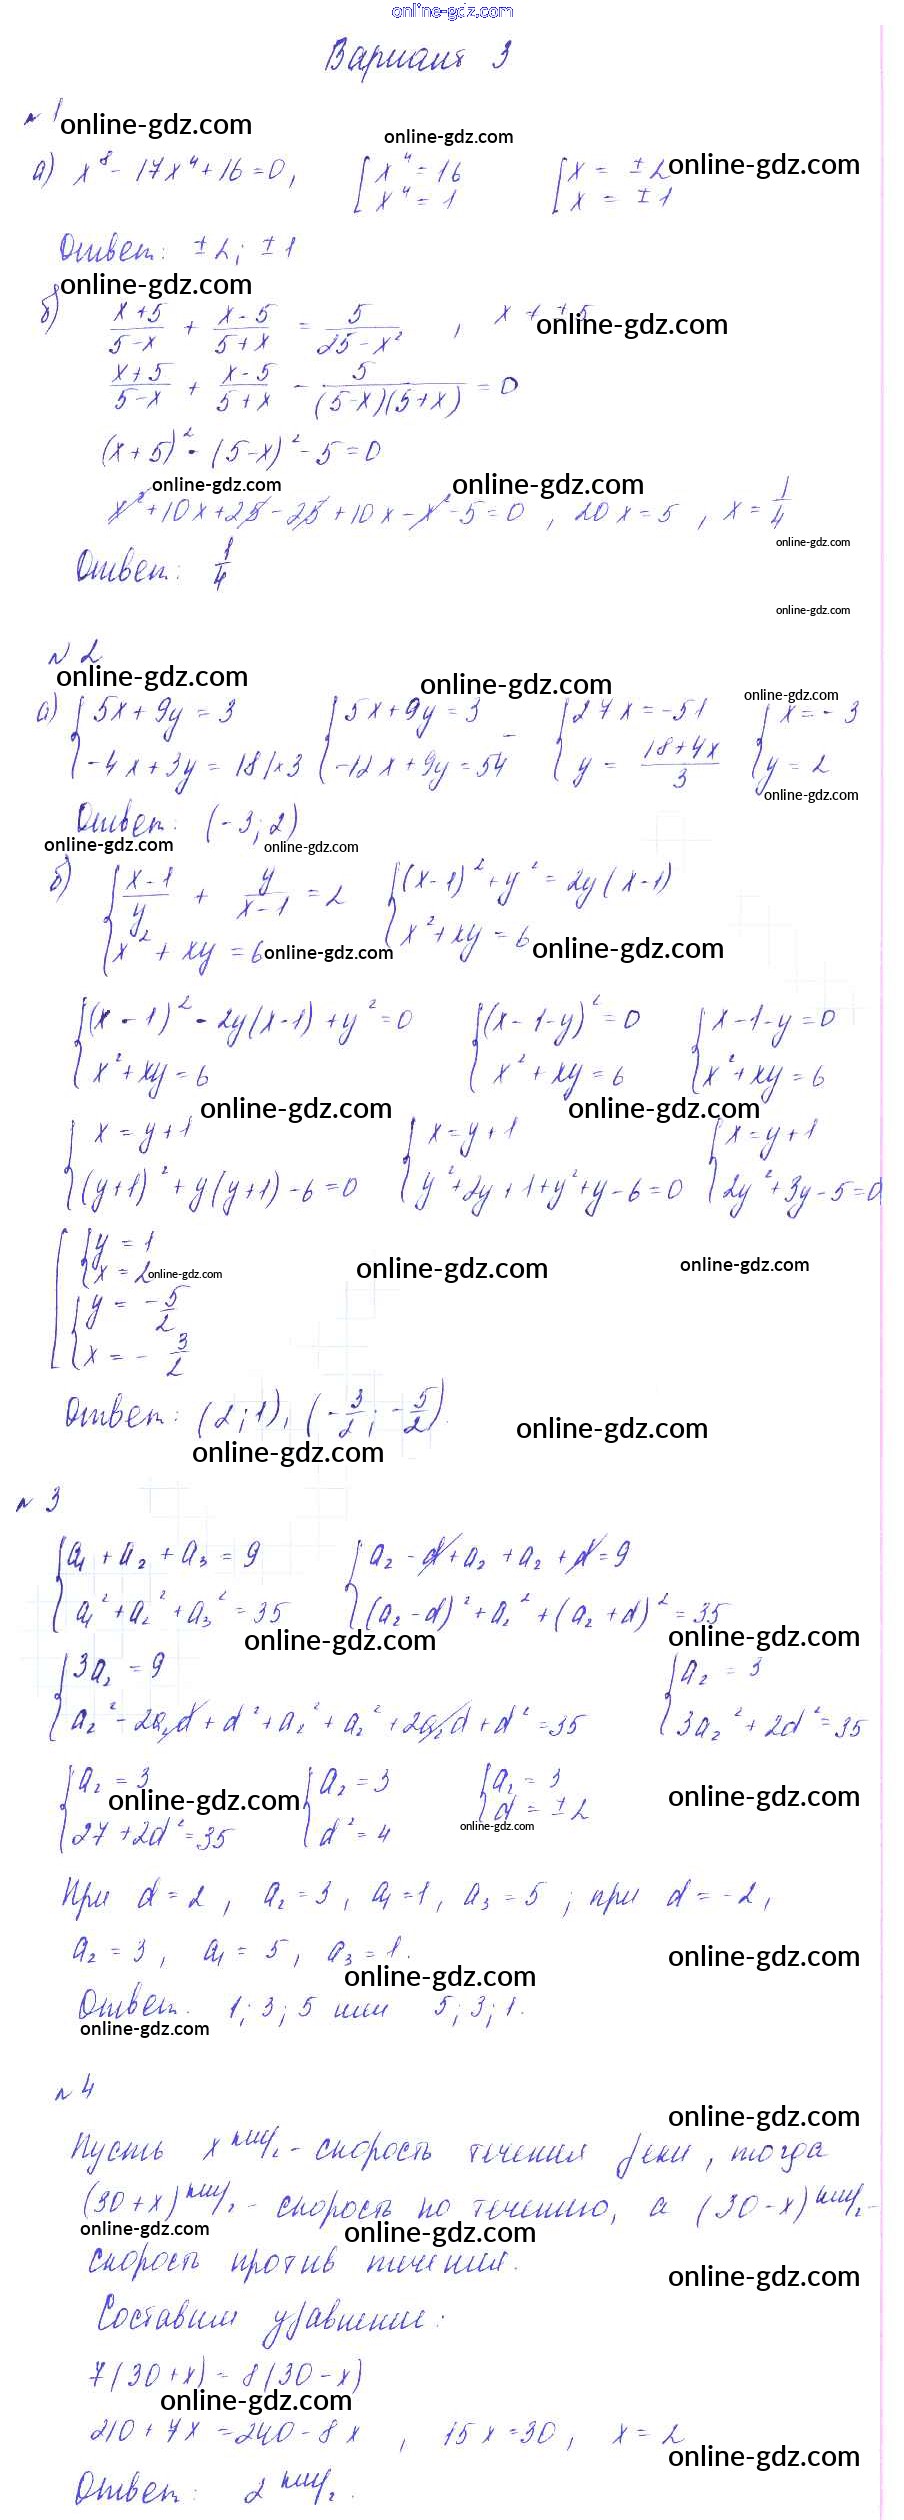 online-gdz.com
Вариант 3
№ 1
online-gdz.com online-gdz.com
а) x⁸ - 17x⁴ + 16 = 0, [ x⁴ = 16 [ x = ± 2 online-gdz.com
x⁴ = 1 x = ± 1
Ответ: ± 2; ± 1
online-gdz.com
б) (x+5)/(5-x) + (x-5)/(5+x) = 5/(25-x²), x ≠ ± 5 online-gdz.com
(x+5)/(5-x) + (x-5)/(5+x) - 5/((5-x)(5+x)) = 0
(x+5)² - (5-x)² - 5 = 0
online-gdz.com online-gdz.com
x² + 10x + 25 - 25 + 10x - x² - 5 = 0, 20x = 5, x = 1/4
online-gdz.com
Ответ: 1/4
online-gdz.com
№ 2
online-gdz.com online-gdz.com online-gdz.com
а) { 5x + 9y = 3 { 5x + 9y = 3 { 27x = -51 { x = -3
-4x + 3y = 18 |×3 -12x + 9y = 54 - y = (18+4x)/3 y = 2
online-gdz.com
Ответ: (-3; 2)
online-gdz.com online-gdz.com
б) { (x-1)/y + y/(x-1) = 2 { (x-1)² + y² = 2y(x-1)
x² + xy = 6 online-gdz.com x² + xy = 6 online-gdz.com
{ (x-1)² - 2y(x-1) + y² = 0 { (x-1-y)² = 0 { x-1-y = 0
x² + xy = 6 x² + xy = 6 x² + xy = 6
online-gdz.com online-gdz.com
{ x = y+1 { x = y+1 { x = y+1
(y+1)² + y(y+1) - 6 = 0 y² + 2y + 1 + y² + y - 6 = 0 2y² + 3y - 5 = 0
[ { y = 1
x = 2 online-gdz.com online-gdz.com online-gdz.com
{ y = - 5/2
x = - 3/2
Ответ: (2; 1), (- 3/2; - 5/2). online-gdz.com
online-gdz.com
№ 3
{ a₁ + a₂ + a₃ = 9 { a₂ - d + a₂ + a₂ + d = 9
a₁² + a₂² + a₃² = 35 (a₂ - d)² + a₂² + (a₂ + d)² = 35
online-gdz.com online-gdz.com
{ 3a₂ = 9 { a₂ = 3
a₂² - 2a₂d + d² + a₂² + a₂² + 2a₂d + d² = 35 3a₂² + 2d² = 35
{ a₂ = 3 { a₂ = 3 { a₂ = 3
online-gdz.com online-gdz.com
27 + 2d² = 35 d² = 4 d = ± 2
online-gdz.com
При d = 2, a₂ = 3, a₁ = 1, a₃ = 5; при d = -2,
a₂ = 3, a₁ = 5, a₃ = 1. online-gdz.com
online-gdz.com
Ответ. 1; 3; 5 или 5; 3; 1.
online-gdz.com
№ 4
online-gdz.com
Пусть x км/ч - скорость течения реки, тогда
(30+x) км/ч - скорость по течению, а (30-x) км/ч -
online-gdz.com online-gdz.com
скорость против течения.
online-gdz.com
Составим уравнение:
7(30+x) = 8(30-x)
online-gdz.com
210 + 7x = 240 - 8x, 15x = 30, x = 2
online-gdz.com
Ответ: 2 км/ч.